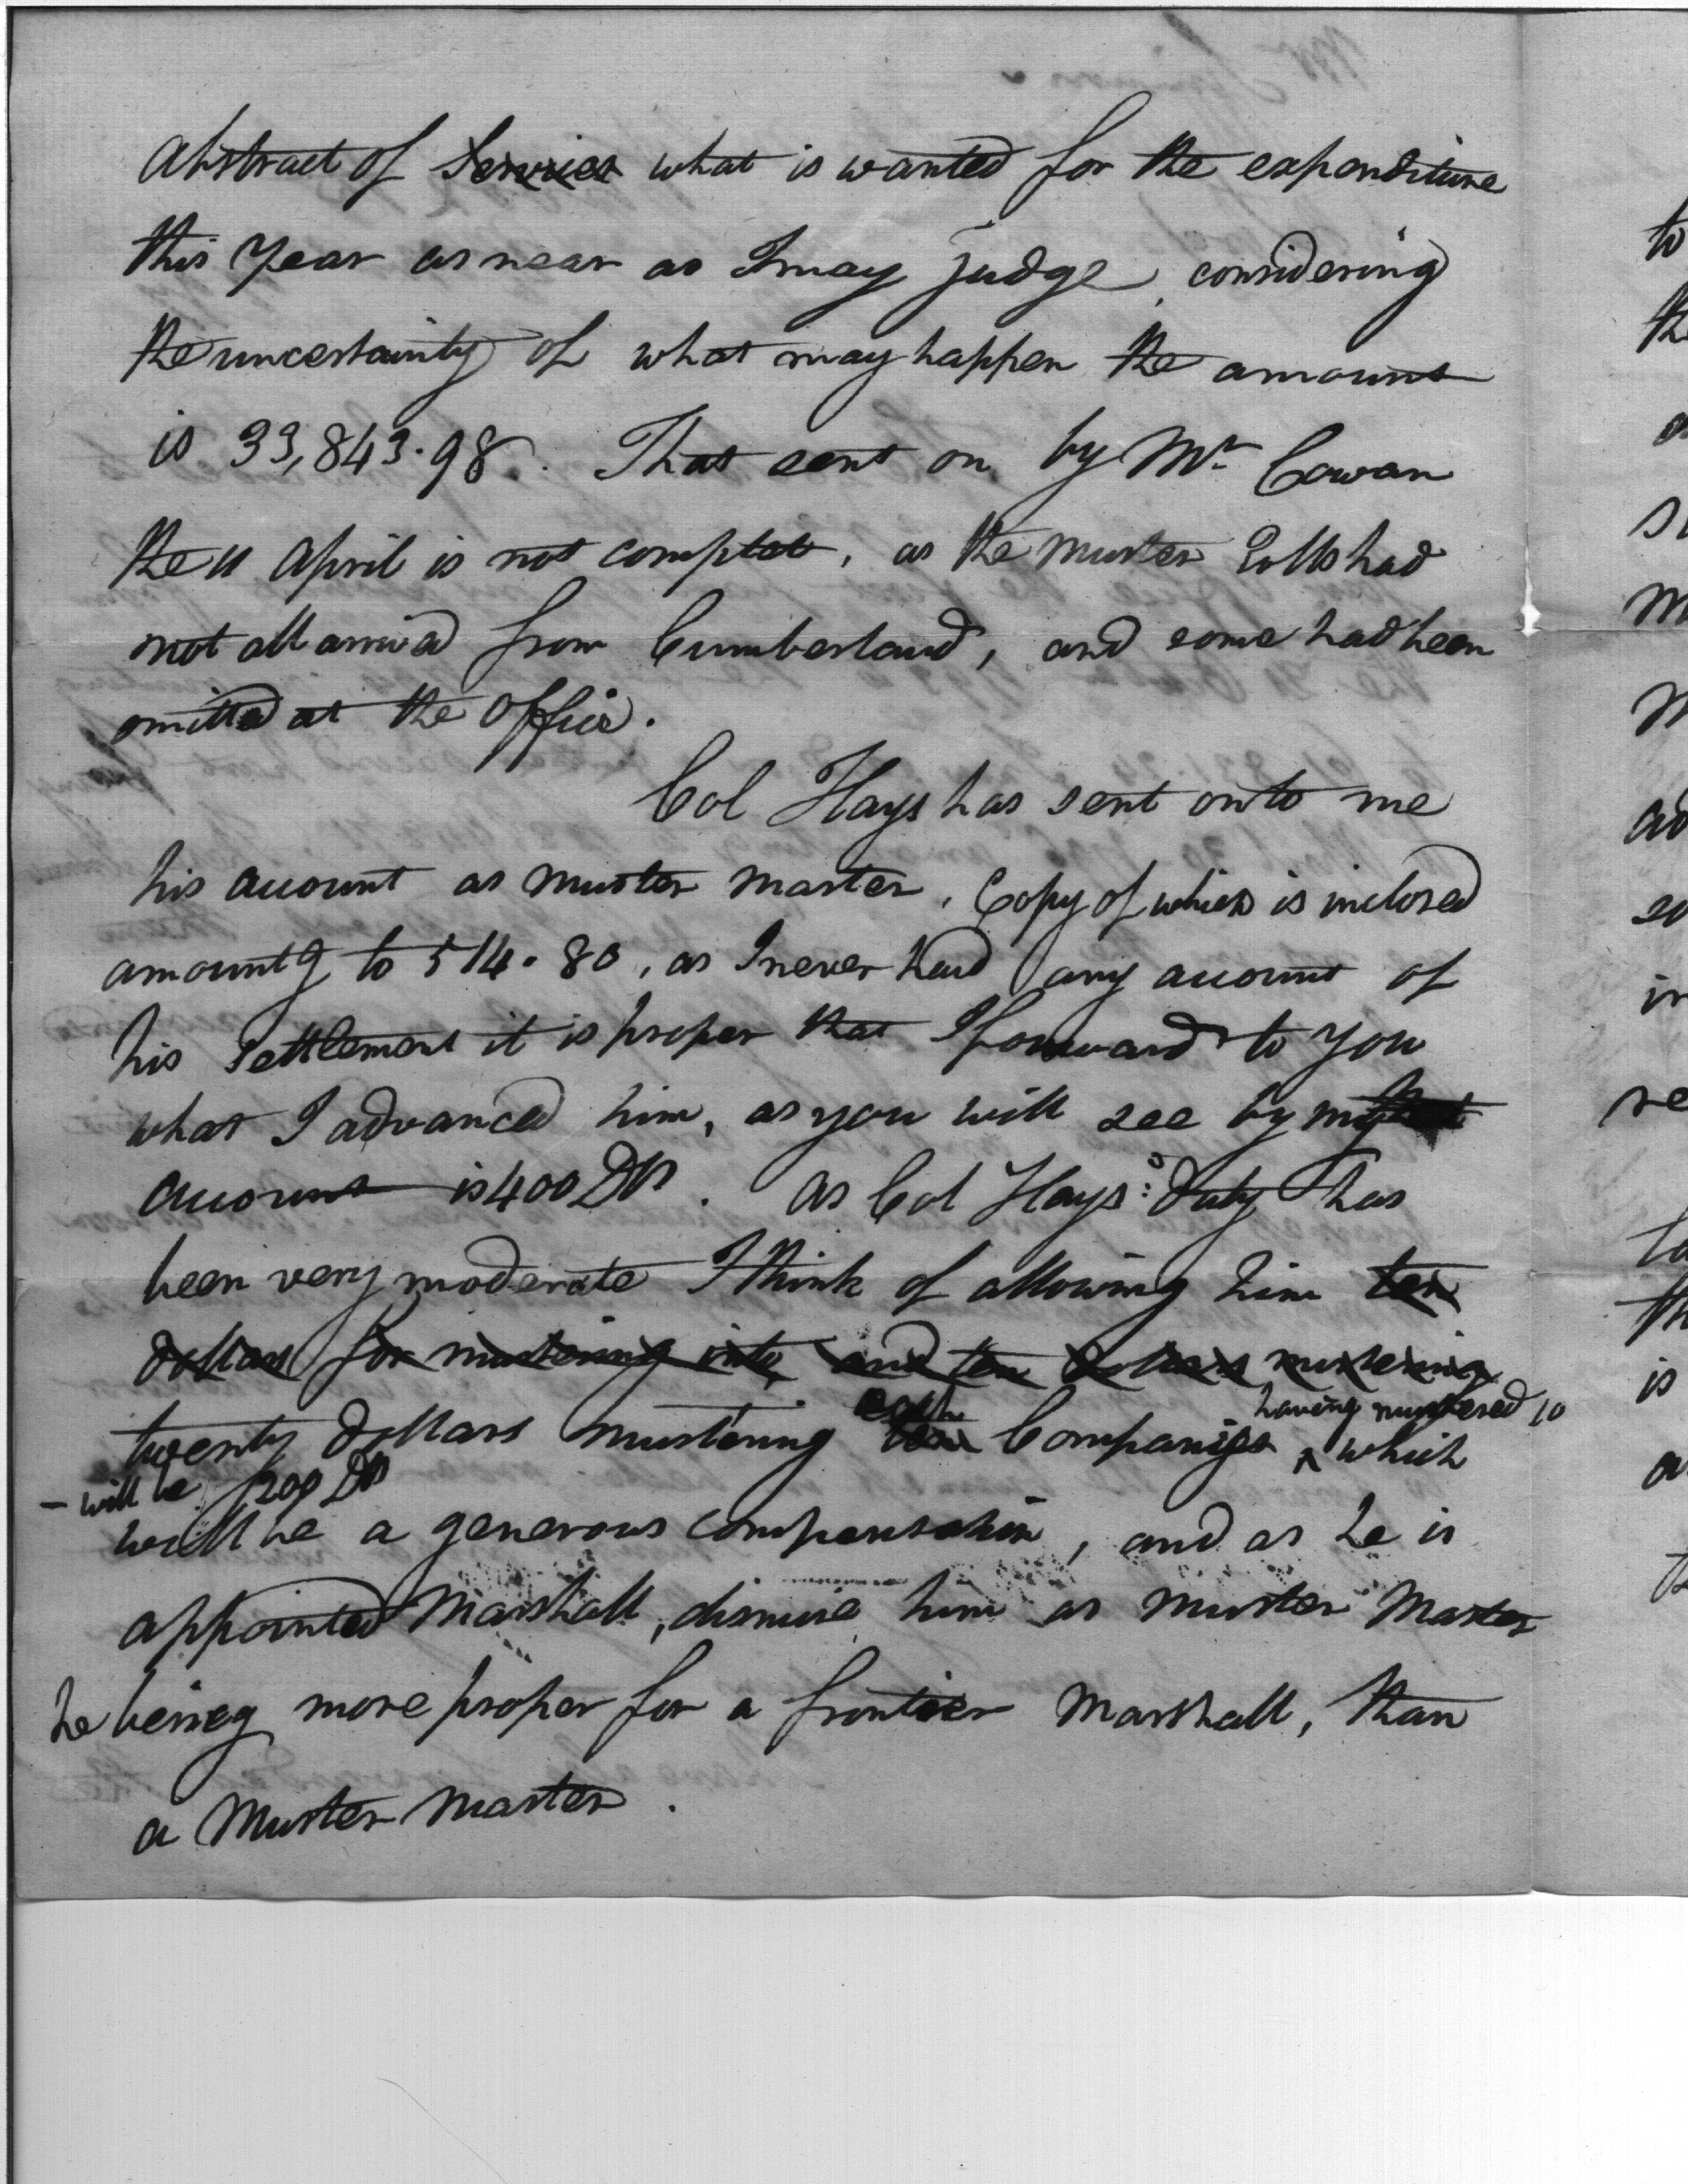 Abstract of Services what is wanted for the expenditure
this Year as near as I may judge, considering
the uncertainty of what may happen the amount
is 33,843.98. That sent on by Mr Cowan
the 11 April is not complet, as the Muster Rolls had
not all arrived from Cumberland, and some had been
omitted at the Office.
Col Hays has sent on to me
his account as muster master, Copy of which is inclosed
amountg to 514.80, as I never had any account of
his Settlement it is proper that I forward to you
what I advanced him, as you will see by my
account is 400 Drs. As Col Hays's duty has
been very moderate I think of allowing him ten
dollars for mustering into, and ten dollars mustering
each having mustered 10
twenty dollars mustering ten Companies ^ which
- will be 200 Drs
will be a generous compensation, and as he is
appointed Marshall, dismise him as Muster Master
he being more proper for a frontier Marshall, than
a Muster Master.
to
the
m
in
re
th
is